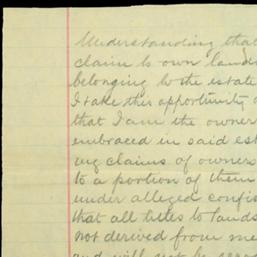 Understanding that
claim to own lands
belonging to the estate
I take this opportunity
that I am the owner
embraced in said est
ing claims of owners
to a portion of them
under alleged confis
that all titles to lands
not derived from me
and will not be